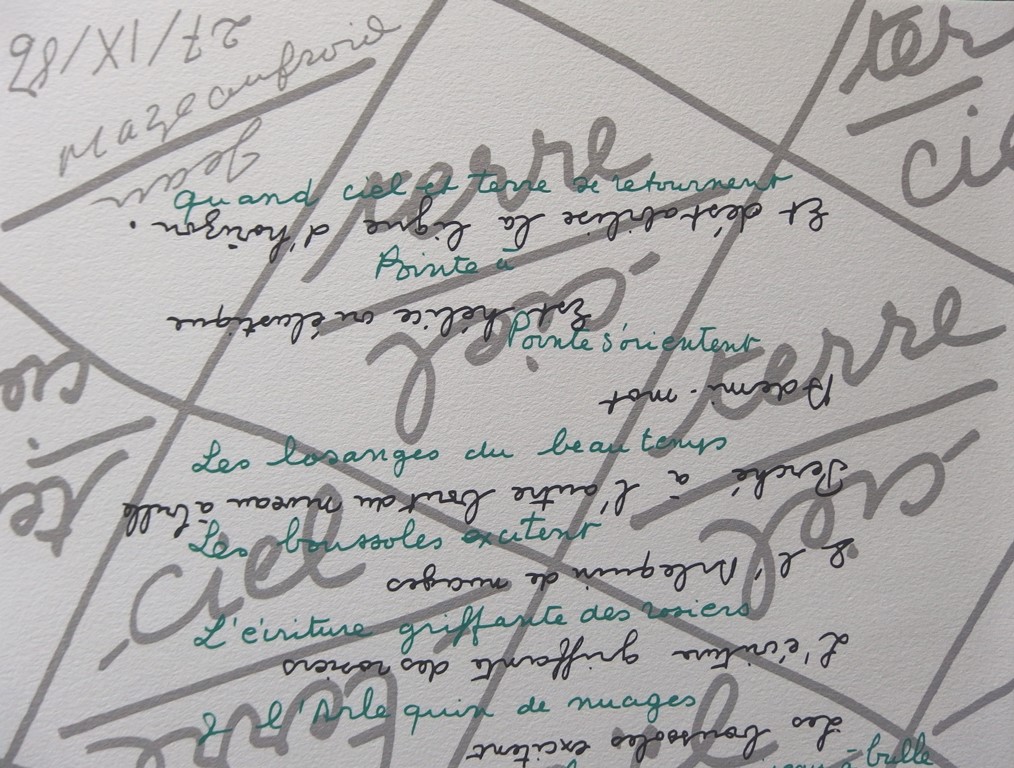 27/XI/86
Mazeaufroid
Jean
terre
ciel
terre
ciel
Quand ciel et terre se retournent
Et déstabilise la ligne d'horizon.
Pointe à
Est hélice ou élastique
Pointe s'orientent
A demi-mot
Les losanges du beau temps
Perché à l'autre bout du niveau à bulle
Les boussoles excitent
& l'Arlequin de nuages
L'écriture griffante des rosiers
L'écriture griffante des rosiers
& l'Arlequin de nuages
Les boussoles excitent
à bulle
ciel
terre
ciel
terre
ciel
terre